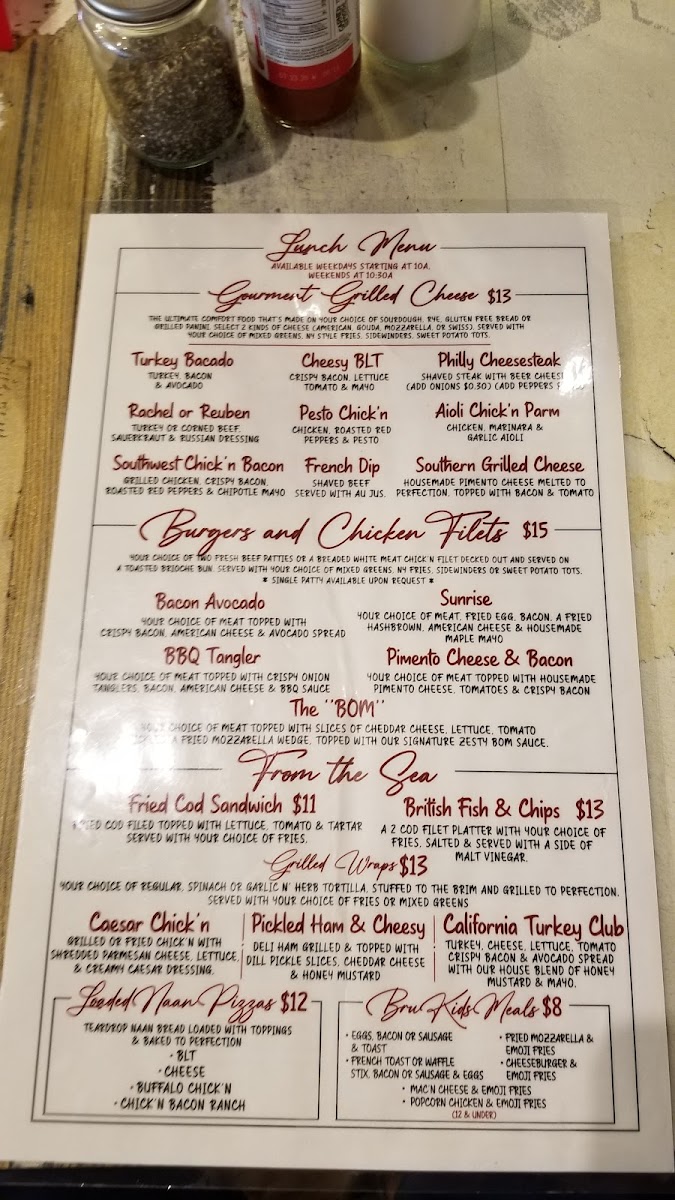 Lunch Menu
AVAILABLE WEEKDAYS STARTING AT 10A,
WEEKENDS AT 10:30A
Gourment Grilled Cheese $13
THE ULTIMATE COMFORT FOOD THAT'S MADE ON YOUR CHOICE OF SOURDOUGH, RYE, GLUTEN FREE BREAD OR
GRILLED PANINI. SELECT 2 KINDS OF CHEESE (AMERICAN, GOUDA, MOZZARELLA, OR SWISS). SERVED WITH
YOUR CHOICE OF MIXED GREENS, NY STYLE FRIES, SIDEWINDERS, SWEET POTATO TOTS.
Turkey Bacado
TURKEY, BACON
& AVOCADO
Cheesy BLT
CRISPY BACON, LETTUCE
TOMATO & MAYO
Philly Cheesesteak
SHAVED STEAK WITH BEER CHEESE
(ADD ONIONS $0.30) (ADD PEPPERS
Rachel or Reuben
TURKEY OR CORNED BEEF,
SAUERKRAUT & RUSSIAN DRESSING
Pesto Chick'n
CHICKEN, ROASTED RED
PEPPERS & PESTO
Aioli Chick'n Parm
CHICKEN, MARINARA &
GARLIC AIOLI
Southwest Chick'n Bacon
GRILLED CHICKEN, CRISPY BACON,
ROASTED RED PEPPERS & CHIPOTLE MAYO
French Dip
SHAVED BEEF
SERVED WITH AU JUS.
Southern Grilled Cheese
HOUSEMADE PIMENTO CHEESE MELTED TO
PERFECTION, TOPPED WITH BACON & TOMATO
Burgers and Chicken Filets $15
YOUR CHOICE OF TWO FRESH BEEF PATTIES OR A BREADED WHITE MEAT CHICK'N FILET DECKED OUT AND SERVED ON
A TOASTED BRIOCHE BUN. SERVED WITH YOUR CHOICE OF MIXED GREENS, NY FRIES, SIDEWINDERS OR SWEET POTATO TOTS.
* SINGLE PATTY AVAILABLE UPON REQUEST *
Bacon Avocado
YOUR CHOICE OF MEAT TOPPED WITH
CRISPY BACON, AMERICAN CHEESE & AVOCADO SPREAD
Sunrise
YOUR CHOICE OF MEAT, FRIED EGG, BACON, A FRIED
HASHBROWN, AMERICAN CHEESE & HOUSEMADE
MAPLE MAYO
BBQ Tangler
YOUR CHOICE OF MEAT TOPPED WITH CRISPY ONION
TANGLERS, BACON, AMERICAN CHEESE & BBQ SAUCE
Pimento Cheese & Bacon
YOUR CHOICE OF MEAT TOPPED WITH HOUSEMADE
PIMENTO CHEESE, TOMATOES & CRISPY BACON
The "BOM"
YOUR CHOICE OF MEAT TOPPED WITH SLICES OF CHEDDAR CHEESE, LETTUCE, TOMATO
A FRIED MOZZARELLA WEDGE, TOPPED WITH OUR SIGNATURE ZESTY BOM SAUCE.
From the Sea
Fried Cod Sandwich $11
FRIED COD FILED TOPPED WITH LETTUCE, TOMATO & TARTAR
SERVED WITH YOUR CHOICE OF FRIES.
British Fish & Chips $13
A 2 COD FILET PLATTER WITH YOUR CHOICE OF
FRIES, SALTED & SERVED WITH A SIDE OF
MALT VINEGAR.
Grilled Wraps $13
YOUR CHOICE OF REGULAR, SPINACH OR GARLIC N' HERB TORTILLA, STUFFED TO THE BRIM AND GRILLED TO PERFECTION.
SERVED WITH YOUR CHOICE OF FRIES OR MIXED GREENS
Caesar Chick'n
GRILLED OR FRIED CHICK'N WITH
SHREDDED PARMESAN CHEESE, LETTUCE,
& CREAMY CAESAR DRESSING.
Pickled Ham & Cheesy
DELI HAM GRILLED & TOPPED WITH
DILL PICKLE SLICES, CHEDDAR CHEESE
& HONEY MUSTARD
California Turkey Club
TURKEY, CHEESE, LETTUCE, TOMATO
CRISPY BACON & AVOCADO SPREAD
WITH OUR HOUSE BLEND OF HONEY
MUSTARD & MAYO.
Loaded Naan Pizzas $12
TEARDROP NAAN BREAD LOADED WITH TOPPINGS
& BAKED TO PERFECTION
• BLT
• CHEESE
• BUFFALO CHICK'N
• CHICK'N BACON RANCH
Bru Kids Meals $8
• EGGS, BACON OR SAUSAGE
& TOAST
• FRENCH TOAST OR WAFFLE
STIX, BACON OR SAUSAGE & EGGS
• FRIED MOZZARELLA &
EMOJI FRIES
• CHEESEBURGER &
EMOJI FRIES
• MAC'N CHEESE & EMOJI FRIES
• POPCORN CHICKEN & EMOJI FRIES
(12 & UNDER)